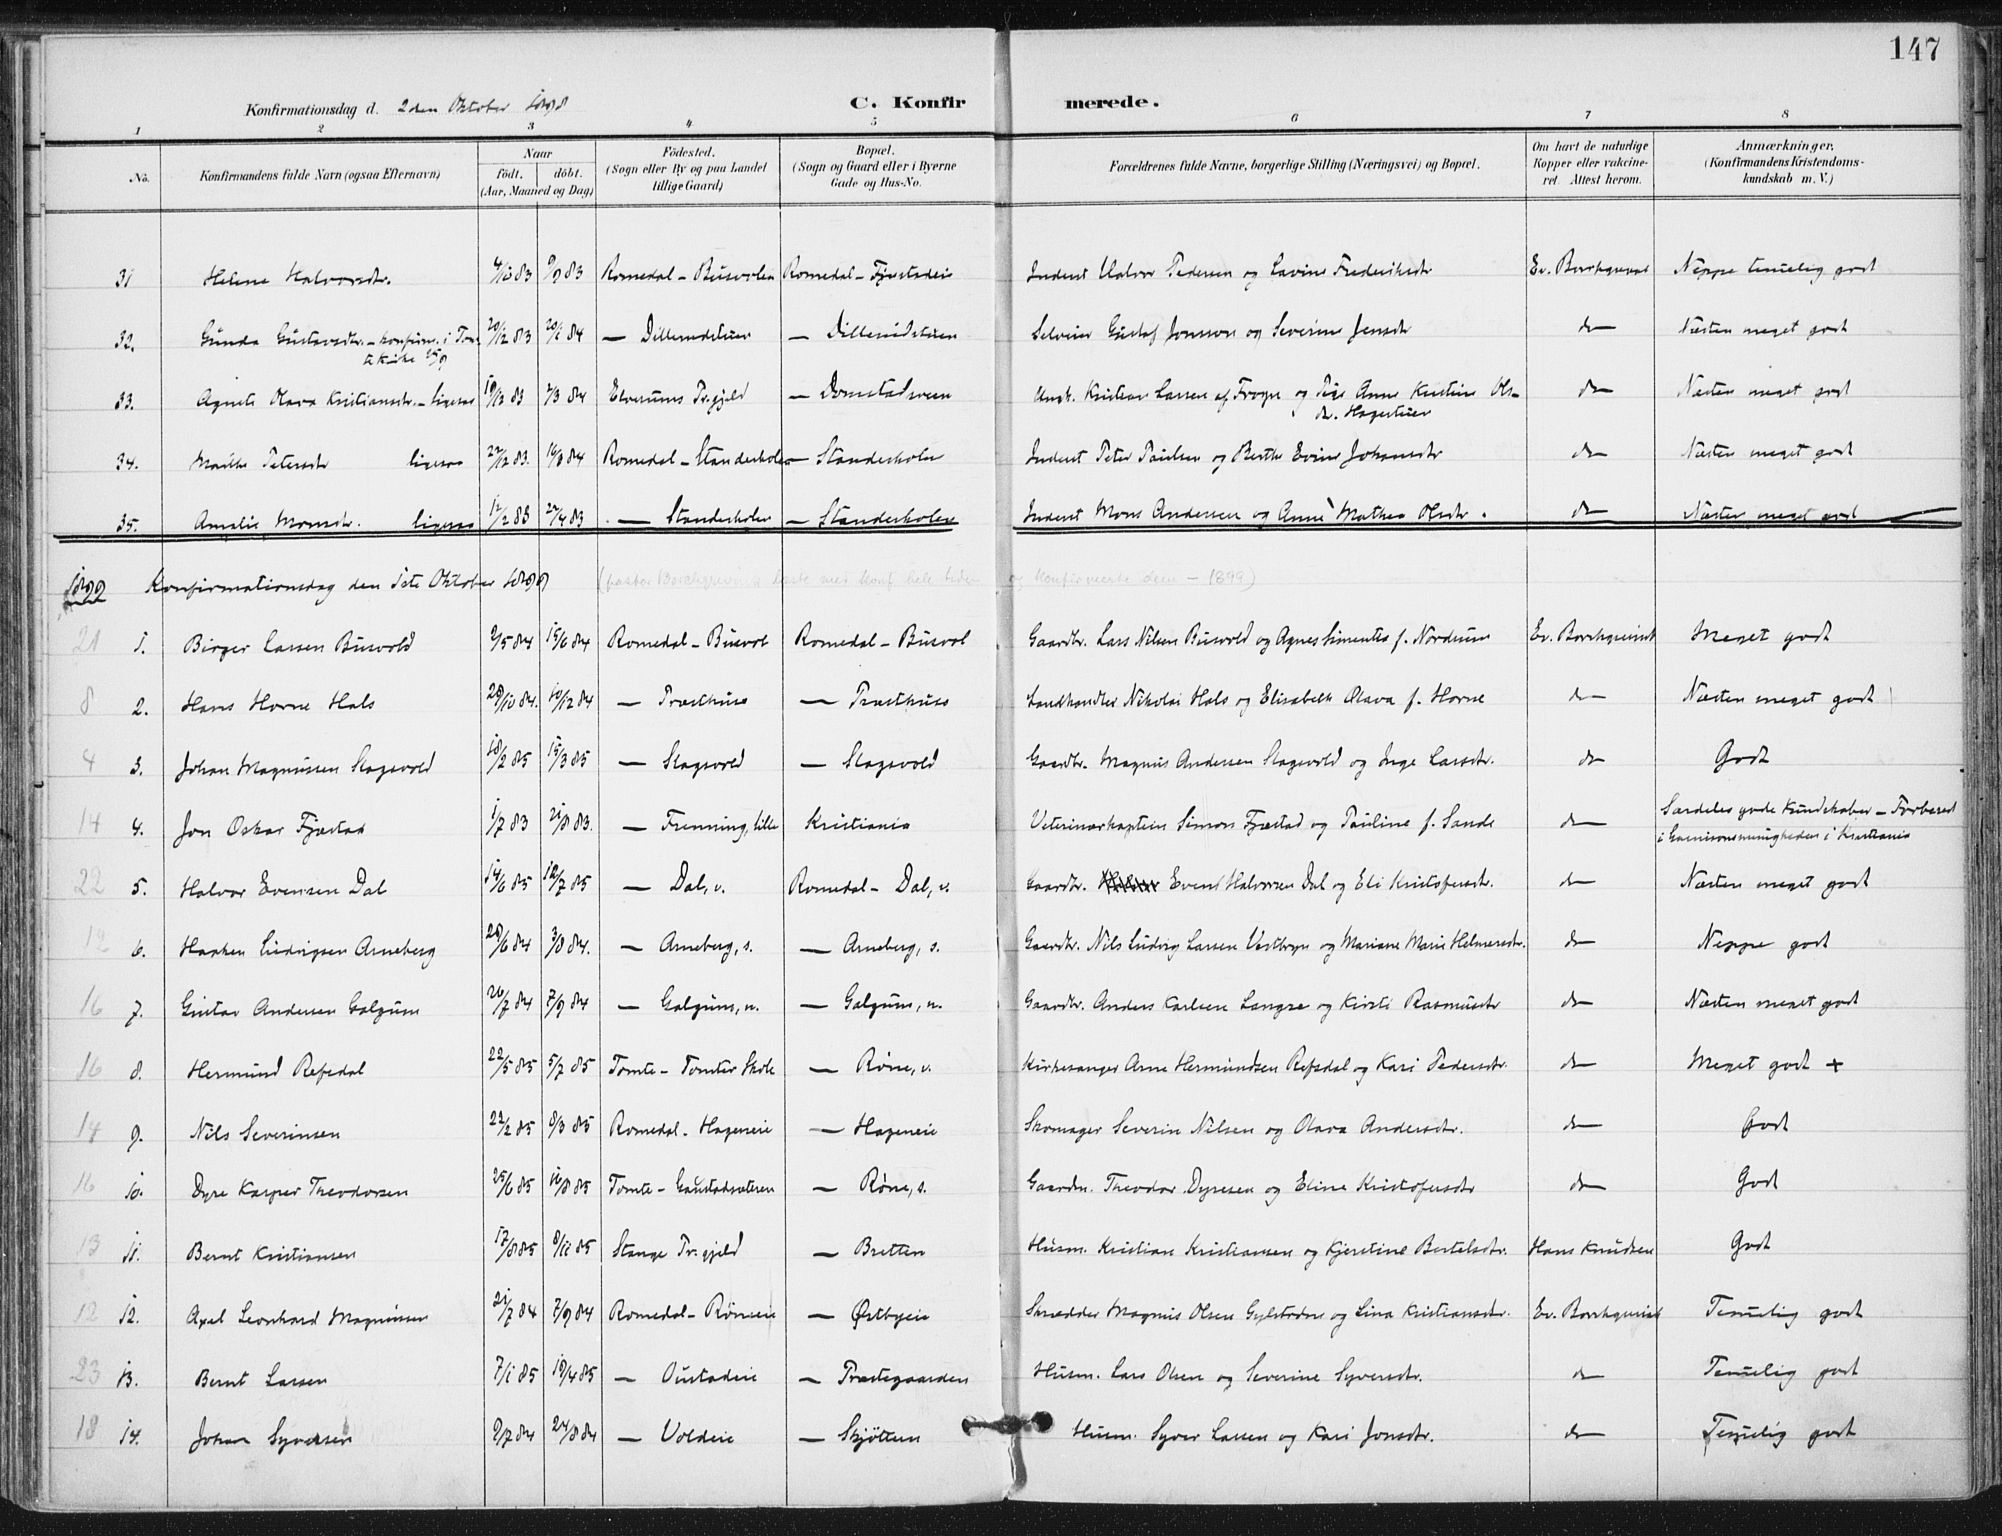 147
Konfirmationsdag d. 2den Oktober 1898
C. Konfirmerede.
1 2 3 4 5 6 7 8
No. Konfirmandens fulde Navn (ogsaa Efternavn) Naar födt. döbt. (Aar, Maaned og Dag) Födested. (Sogn eller By og paa Landet tillige Gaard) Bopæl. (Sogn og Gaard eller i Byerne Gade og Hus-No. Forældrenes fulde Navne, borgerlige Stilling (Næringsvei) og Bopæl. Om havt de naturlige Kopper eller vakcineret. Attest herom. Anmærkninger. (Konfirmandens Kristendomskundskab m. V.)
31 Helene Halvorsdtr. 4/10 83 9/9 83 Romedal – Busvolen Romedal – Fjæstadeie Inderst Halvor Pedersen og Lovine Frederiksdtr Ev. Borchgrevink Neppe temelig godt
32. Gunda Gustavsdtr. – konfirm. i Tomte Kirke 20/12 83 20/1 84 — Dillerudstuen — Dillerudstuen Selveier Gustaf Jonsson og Severine Jensdr do Næsten meget godt
33. Agnete Olava Kristiansdtr. – ligesaa 19/12 83 2/3 84 Elverums Pr.gjeld — Domstadsveen Ungk. Kristian Larsen af Frogn og Pige Anne Kristine Olsdr. Hagestuen do Næsten meget godt
34. Mathea Petersdtr ligesaa 22/12 83. 14/4 84 Romedal – Standerholen — Standerholen Inderst Peter Paulsen og Berthe Evine Johansdtr do Næsten meget godt
35. Amalie Monsdtr. ligesaa 12/2 83 22/4 83 — Standerholen — Standerholen Inderst Mons Andersen og Anne Mathea Olsdtr. do Næsten meget godt
1899 Konfirmationsdag den 1ste Oktober 1899 (pastor Borchgrevink læste med konf. hele tiden og konfirmerte dem – 1899)
21 1. Birger Larsen Busvold 2/5 84 15/6 84 Romedal – Busvol Romedal – Busvol Gaardbr. Lars Nilsen Busvold og Agnes Simentis f. Nordrum Ev. Borchgrevink Meget godt
8 2. Hans Horne Hals 28/10 84. 10/12 84 — Præsthus — Præsthus Landhandler Nikolai Hals og Elisabeth Olava f. Horne do Næsten meget godt
4 3. Johan Magnussen Slagsvold 18/2 85 15/3 85 — Slagsvold — Slagsvold Gaardbr. Magnus Andersen Slagsvold og Inge Larsdtr. do Godt
14 4. Jon Oskar Fjæstad 1/7 83 21/8 83. — Frenning, lille Kristiania Veterinærkaptein Simon Fjæstad og Pauline f. Sande do Særdeles gode kundskaber – Forberedt i Garnisonsmenigheden i Kristiania
22 5. Halvor Evensen Dal 14/6 85 12/7 85 — Dal, v. Romedal – Dal, v. Gaardbr. Even Halvorsen Dal og Eli Kristofersdtr. do Næsten meget godt
12 6. Haaken Ludvigsen Arneberg 28/6 84 3/8 84. — Arneberg, s. — Arneberg, s. Gaardbr. Nils Ludvig Larsen Vestbyn og Mariane Marie Helmersdtr. do Neppe godt
16 7. Gustav Andersen Galgum 26/7 84 7/9 84 — Galgum, n. — Galgum, n. Gaardbr. Anders Karlsen Langre og Kirsti Rasmusdtr do Næsten meget godt
16 8. Hermund Refsdal 22/5 85 5/7 85 Tomte – Tomter Skole — Røne, v. Kirkesanger Arne Hermundsen Refsdal og Kari Pedersdtr. do Meget godt +
14 9. Nils Severinsen 22/2 85 8/3 85 Romedal – Hageneie — Hageneie Skomager Severin Nilsen og Olava Andersdtr. do Godt
16 10. Dyre Kasper Theodorsen 25/6 85 16/8 85 Tomte – Gaustadsæteren — Røne, s. Gaardm. Theodor Dyresen og Eline Kristofersdtr do Godt
13 11. Bernt Kristiansen 17/8 85 8/11 85 Stange Pr.gjeld — Bretten Husm. Kristian Kristiansen og Kjerstine Bertelsdtr. Hans Knudsen Godt
12 12. Axel Leonhard Magnussen 21/7 84 7/9 84 Romedal – Røneeie — Østbyeie Skrædder Magnus Olsen og Lina Kristiansdtr. Ev. Borchgrevink Temelig godt
23 13. Bernt Larsen 7/1 85 19/4 85 — Oustadeie — Præstegaarden Husm. Lars Olsen og Severine Syversdtr. do Temelig godt
18 14. Johan Syversen 9/7 84 24/8 84 — Voldeie — Skjøtten Husm. Syver Larsen og Kari Jonsdtr. do Temelig godt